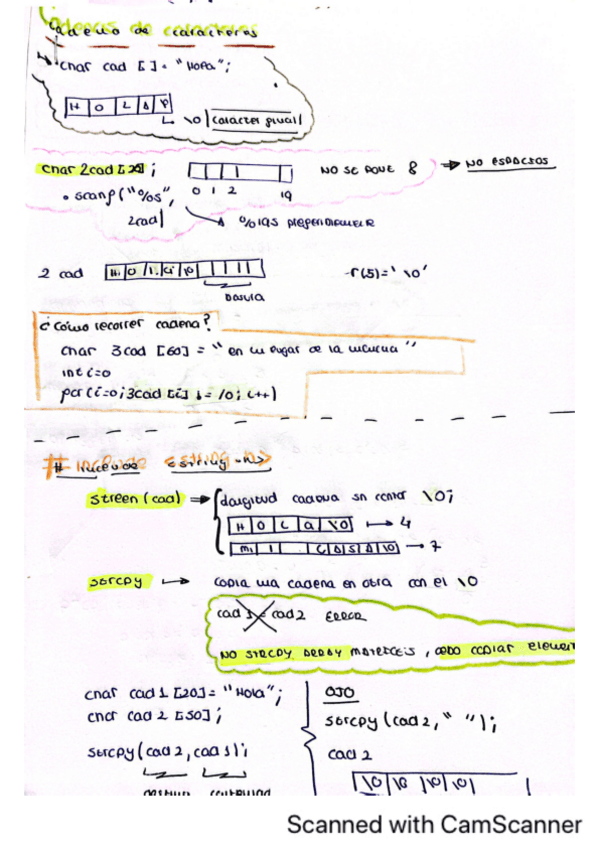 Cadena de caracteres
char cad [ ] = "Hola";
H O L A \0
\0 | carácter final |
char 2cad [20] ;
NO SE PONE & → NO ESPACIOS
0 1 2 19
• scanf("%s",
2cad)
2 cad H O L A \0
-r(5)='\0'
basura
¿ Cómo recorrer cadena?
char 3cad [60] = "en un lugar de la mancha"
int i=0
for (i=0; 3cad [i] != \0; i++)
# include <string.h>
strlen (cad) → longitud cadena sin contar \0;
H O L A \0 → 4
→ 7
strcpy → copia una cadena en otra con el \0
cad 1 = cad 2 ERROR
NO STRCPY ARRAY
char cad 1 [20] = "Hola";
char cad 2 [50];
strcpy (cad 2, cad 1);
OJO
strcpy (cad 2, " ");
cad 2
\0 \0 \0 \0
Scanned with CamScanner